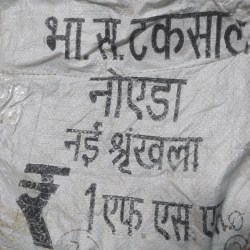 भा.स.टकसाल
नोएडा
नई श्रृंखला
₹ 1 एफ.एस.एस